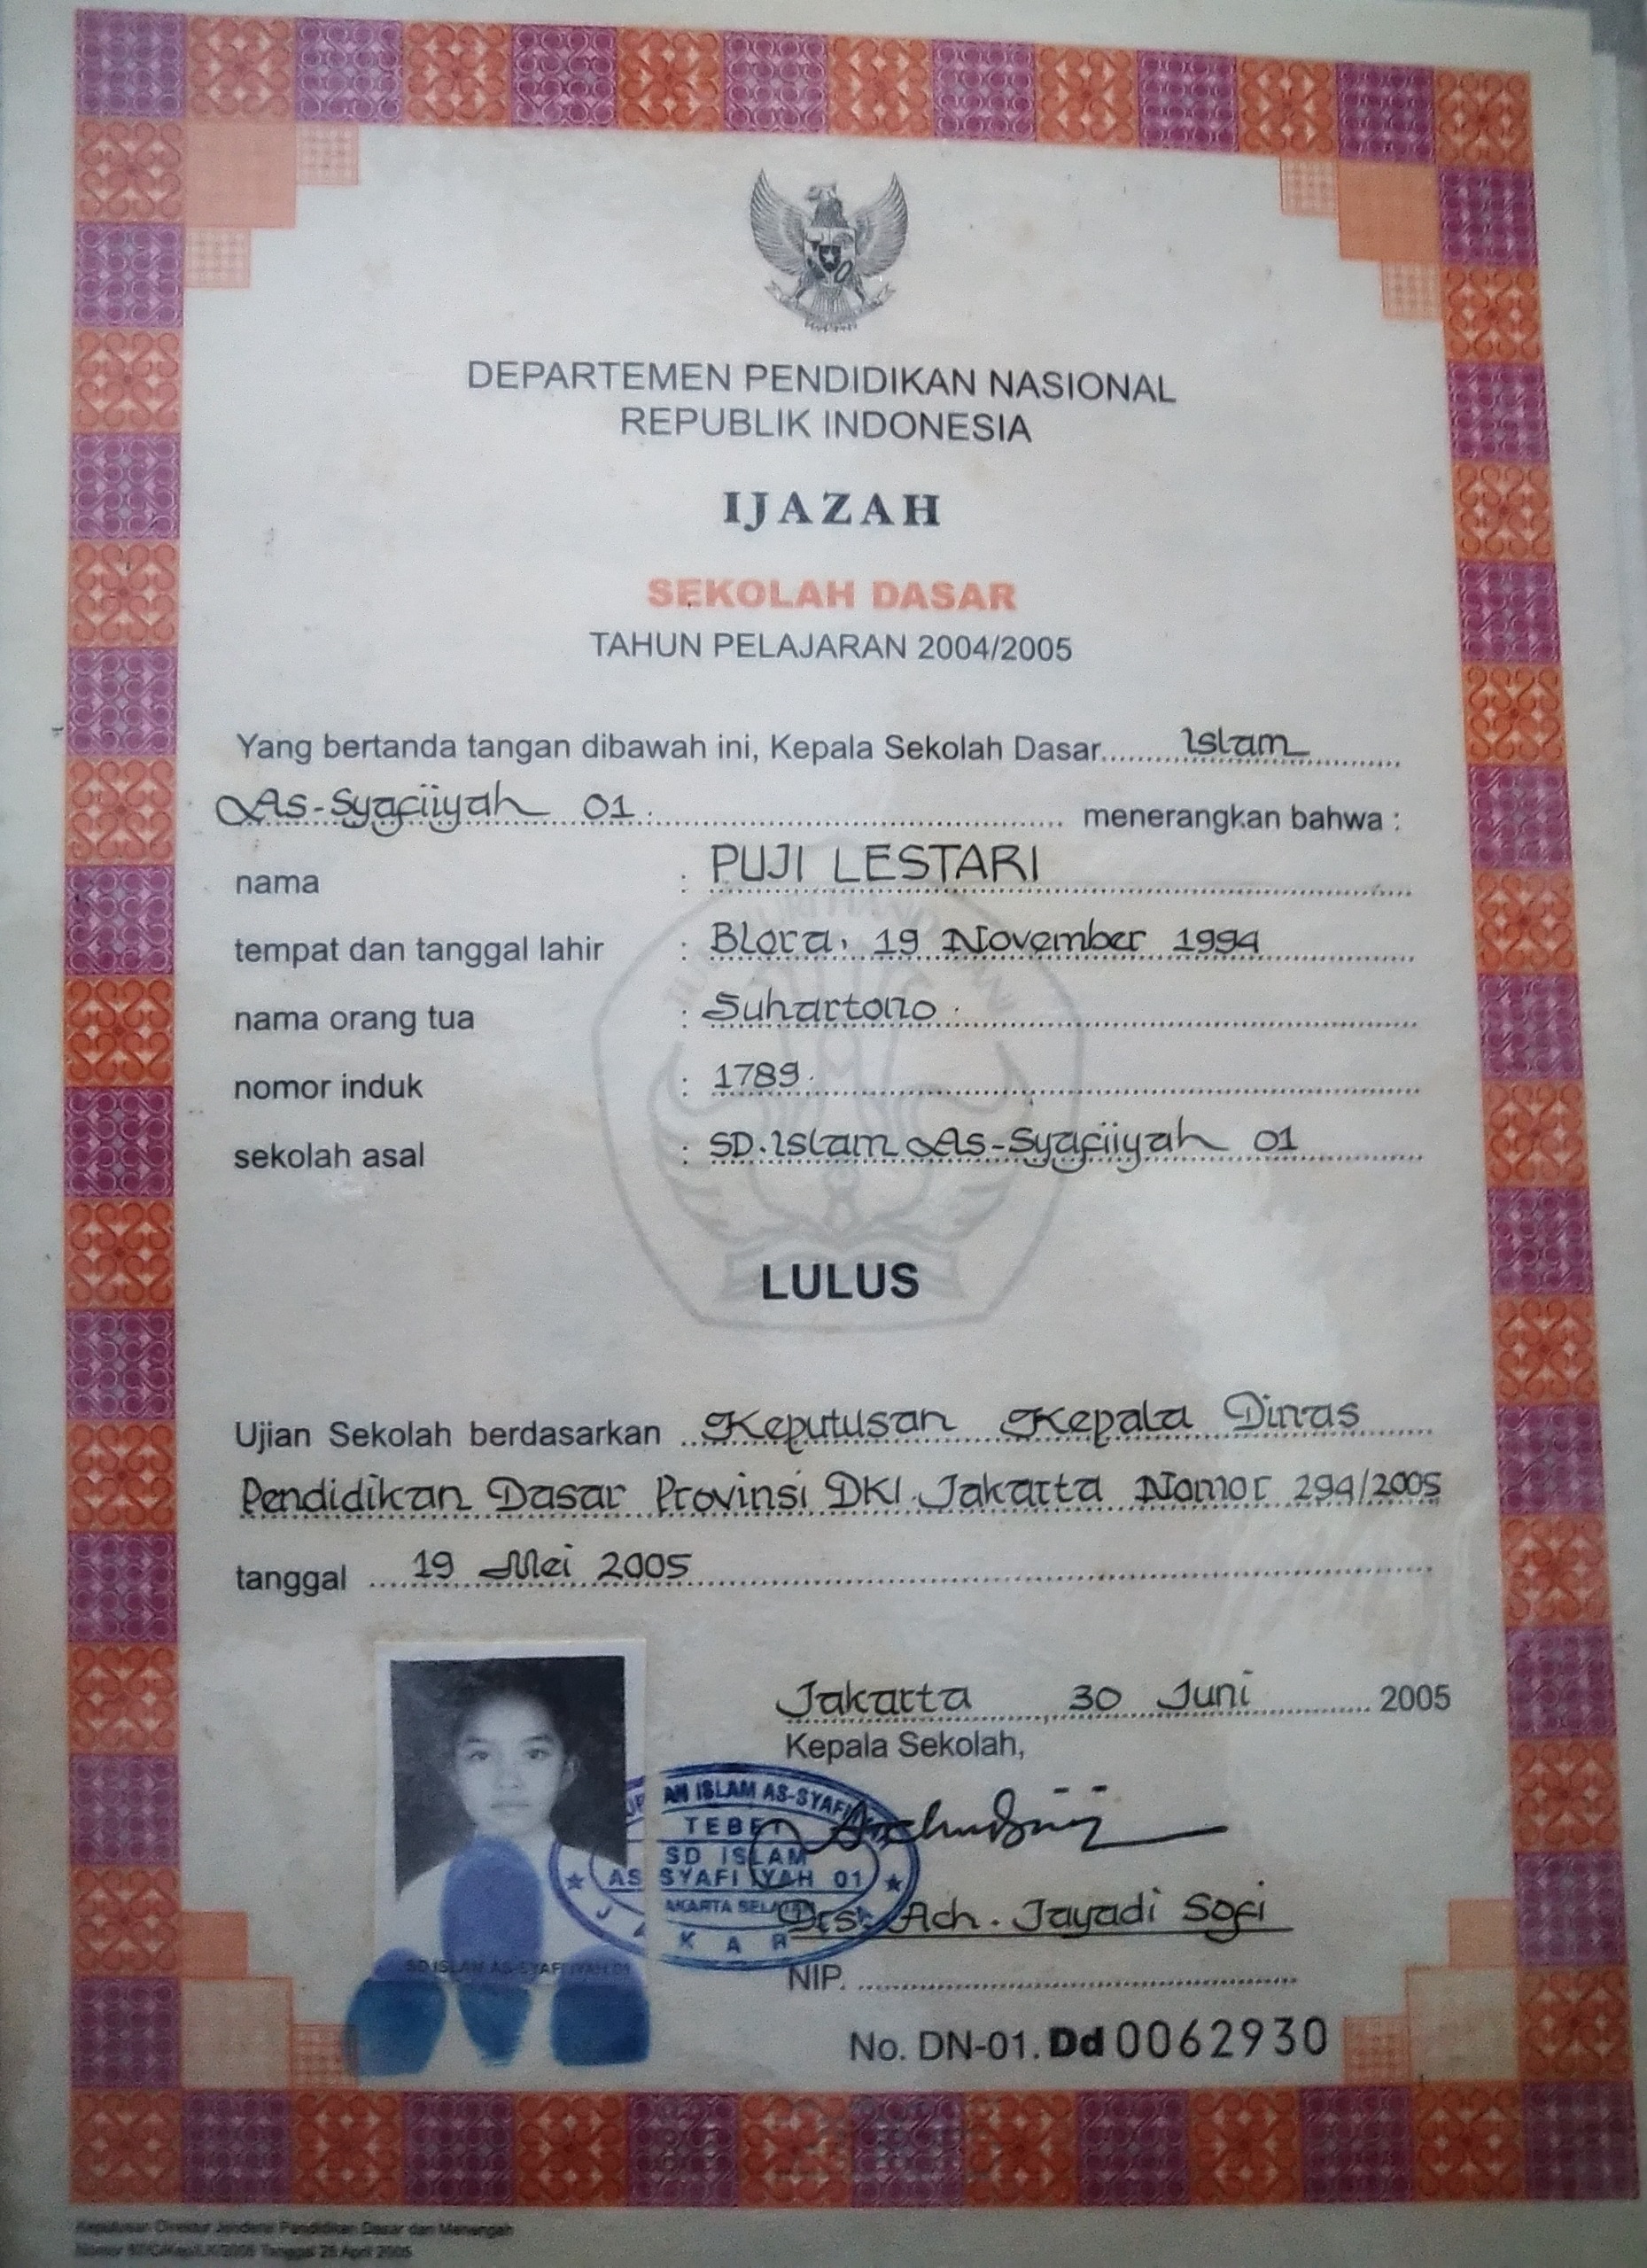 DEPARTEMEN PENDIDIKAN NASIONAL
REPUBLIK INDONESIA
IJAZAH
SEKOLAH DASAR
TAHUN PELAJARAN 2004/2005
Yang bertanda tangan dibawah ini, Kepala Sekolah Dasar Islam
As-Syafiiyah 01 menerangkan bahwa :
nama : PUJI LESTARI
tempat dan tanggal lahir : Blora, 19 November 1994
nama orang tua : Suhartono
nomor induk : 1789
sekolah asal : SD. Islam As-Syafiiyah 01
LULUS
Ujian Sekolah berdasarkan Keputusan Kepala Dinas
Pendidikan Dasar Provinsi DKI Jakarta Nomor 294/2005
tanggal 19 Mei 2005
Jakarta, 30 Juni 2005
Kepala Sekolah,
AN ISLAM AS-SYAFI
TEBET
SD ISLAM
AS SYAFI IYAH 01
JAKARTA SELATAN
Drs. Ach. Jayadi Sofi
SD ISLAM AS-SYAFI'IYAH 01
NIP.
No. DN-01. Dd 0062930
Keputusan Direktur Jenderal Pendidikan Dasar dan Menengah
Tanggal 28 April 2005